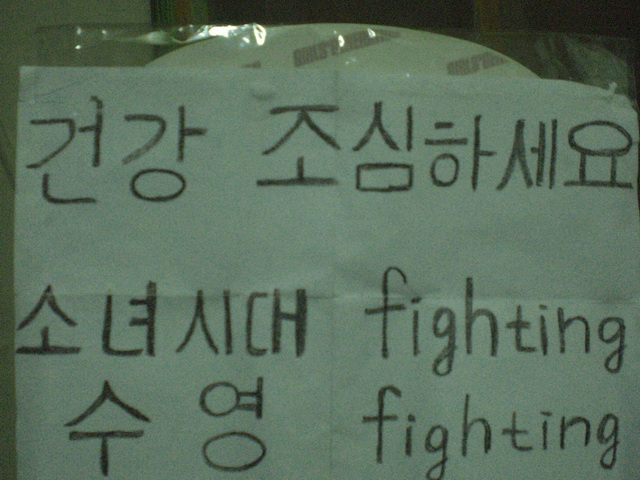 건강 조심하세요
소녀시대 fighting
수영 fighting